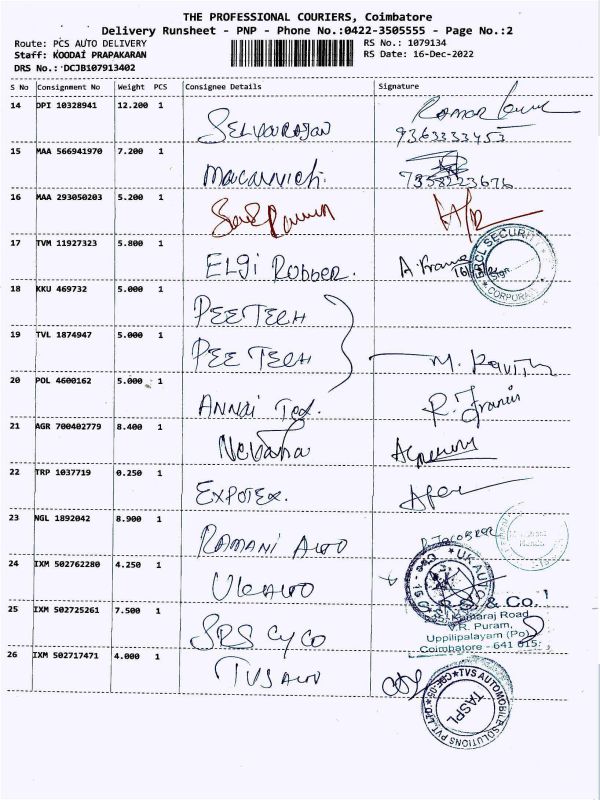 THE PROFESSIONAL COURIERS, Coimbatore
Delivery Runsheet - PNP - Phone No.:0422-3505555 - Page No.:2
Route: PCS AUTO DELIVERY RS No.: 1079134
Staff: KOODAI PRAPAKARAN RS Date: 16-Dec-2022
DRS No.: DCJB107913402
S No Consignment No Weight PCS Consignee Details Signature
14 DPI 10328941 12.200 1 SELVARAJAN
9363333453
15 MAA 566941970 7.200 1
7358223676
16 MAA 293050203 5.200 1
17 TVM 11927323 5.800 1 ELGi RUBBER.
SECURITY
CORPORA
18 KKU 469732 5.000 1 PEE TECH
19 TVL 1874947 5.000 1 PEE TECH
20 POL 4600162 5.000 1 ANNAI R. Francis
21 AGR 700402779 8.400 1
22 TRP 1037719 0.250 1 EXPOTEX.
23 NGL 1892042 8.900 1 RAMANI AUTO
24 IXM 502762280 4.250 1 UK AUTO
25 IXM 502725261 7.500 1 SRS CYCO
S.R.S. & Co.
Kamaraj Road
V.R. Puram,
Uppilipalayam (Po)
Coimbatore - 641 015.
26 IXM 502717471 4.000 1 TVS AUTO
TVS AUTOMOBILE SOLUTIONS PVT. LTD.
TASPL